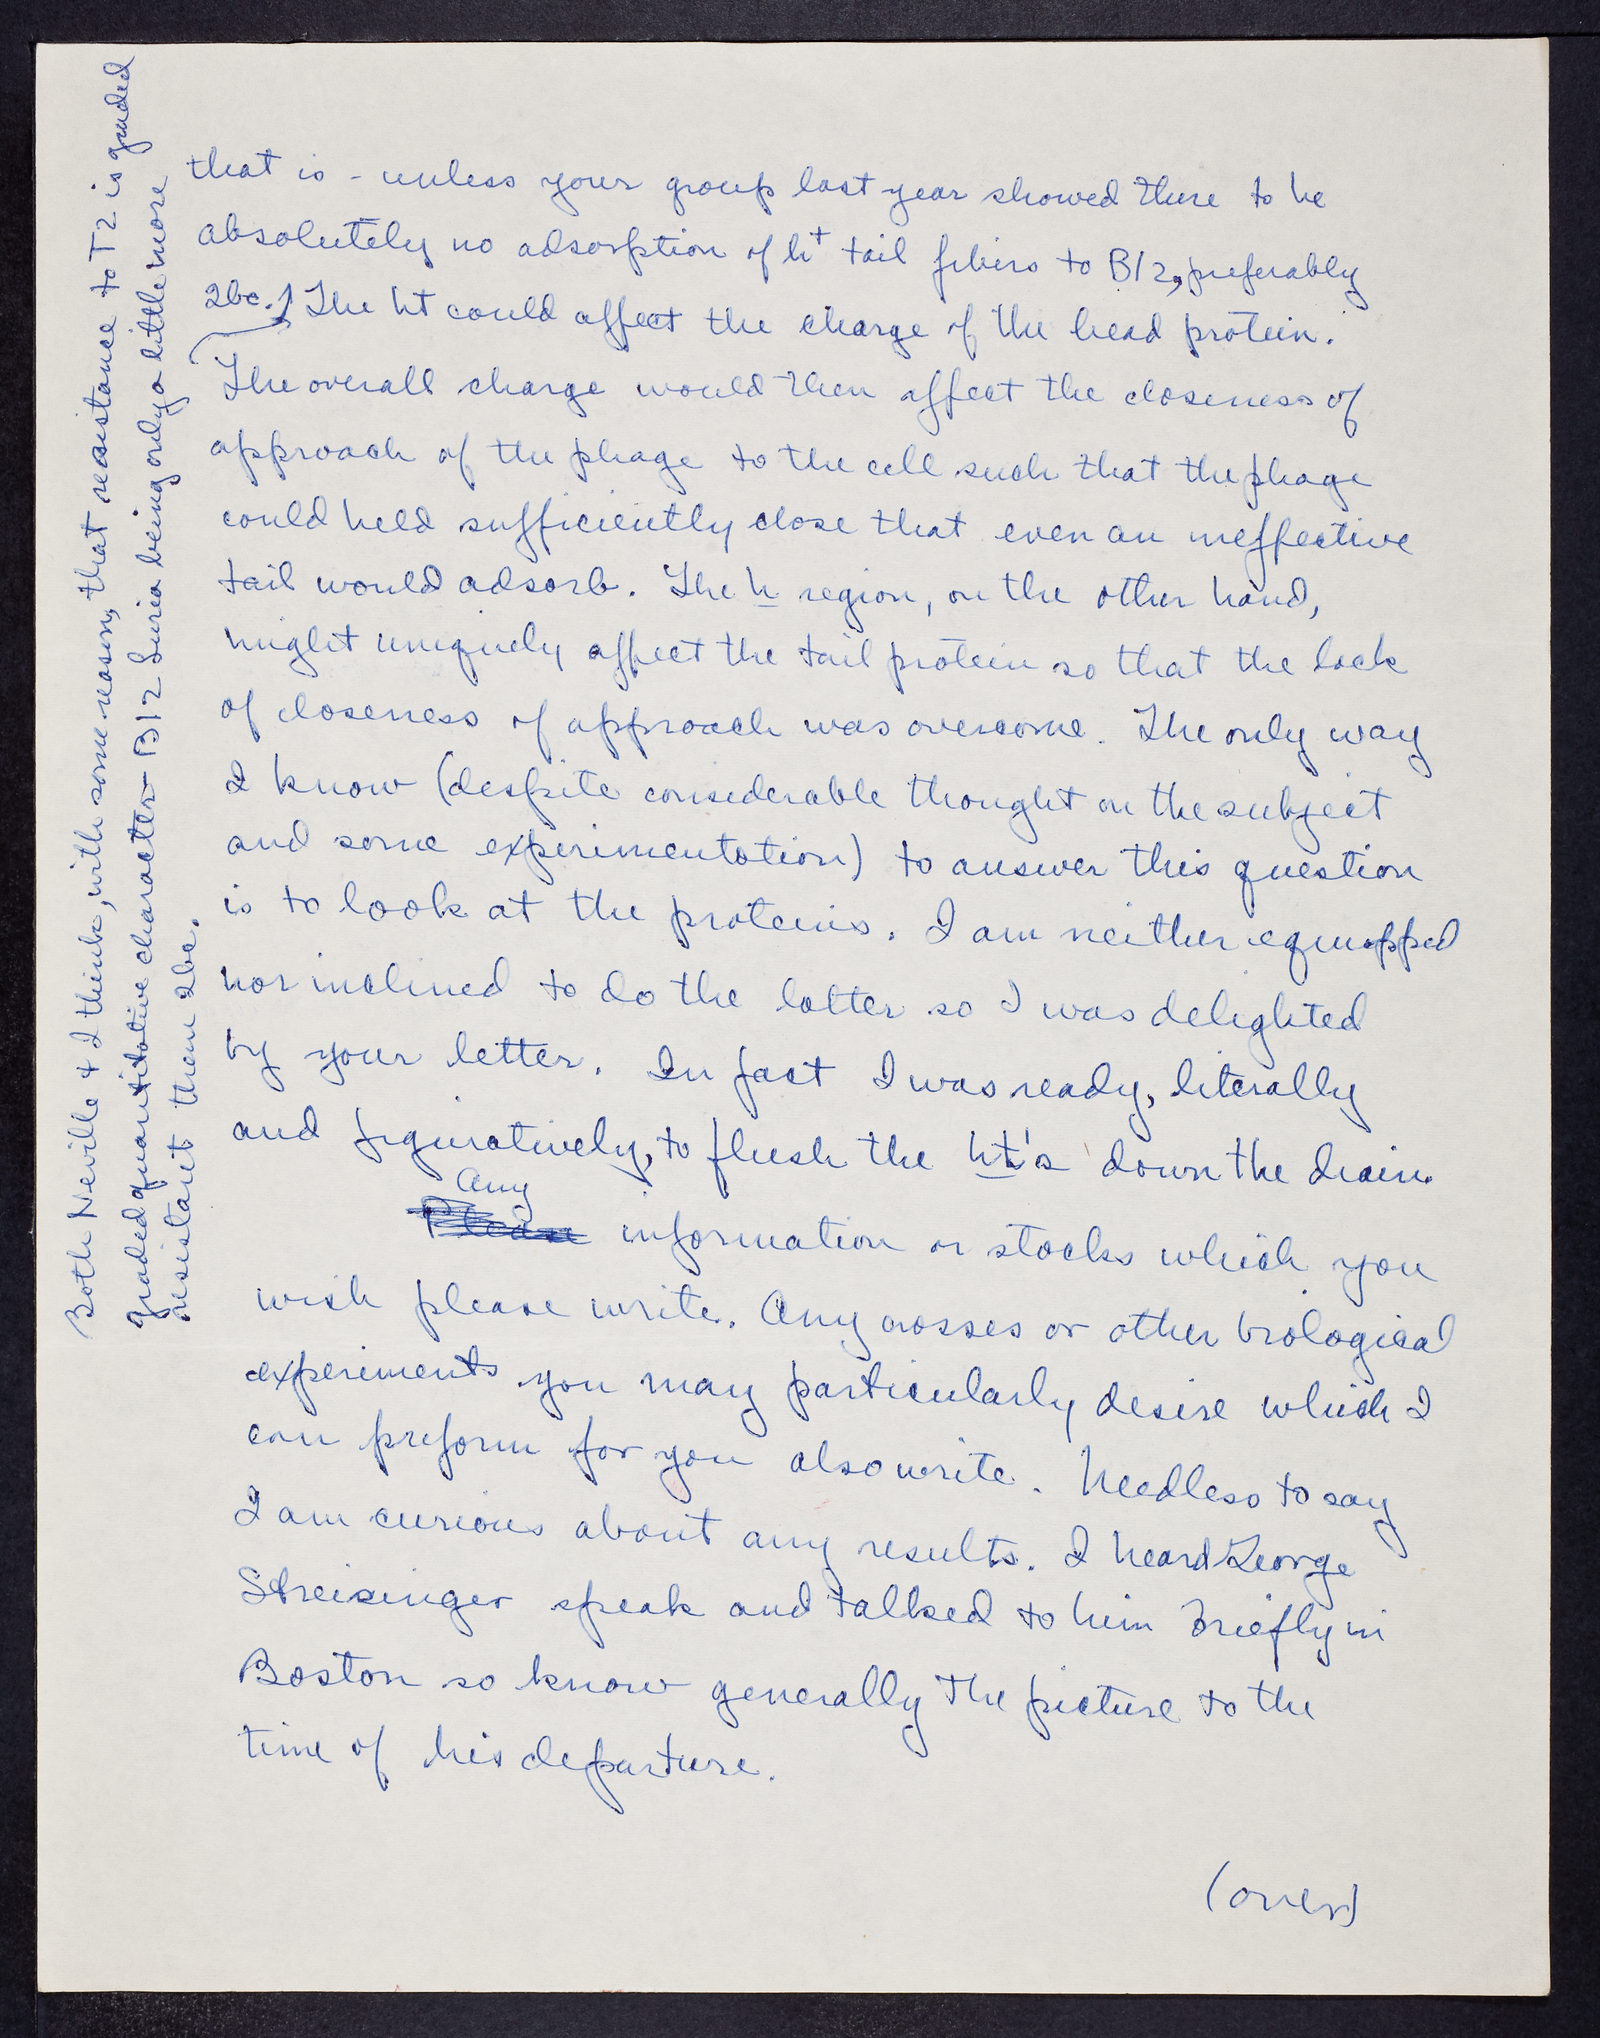 that is - unless your group last year showed there to be
absolutely no adsorption of h+ tail fibers to B/2, preferably
2bc.) The ht could affect the charge of the head protein.
The overall charge would then affect the closeness of
approach of the phage to the cell such that the phage
could held sufficiently close that even an ineffective
tail would adsorb. The h region, on the other hand,
might uniquely affect the tail protein so that the lack
of closeness of approach was overcome. The only way
I know (despite considerable thought on the subject
and some experimentation) to answer this question
is to look at the proteins. I am neither equipped
nor inclined to do the latter so I was delighted
by your letter. In fact I was ready, literally
and figuratively, to flush the ht's down the drain.
Any
Please information or stocks which you
wish please write. Any crosses or other biological
experiments you may particularly desire which I
can preform for you also write. Needless to say
I am curious about any results. I heard George
Streisinger speak and talked to him briefly in
Boston so know generally the picture to the
time of his departure.
(over)
Both Neville & I think, with some reason, that resistance to T2 is graded
graded quantitative character - B/2 Luria being only a little more
resistant then 2bc.